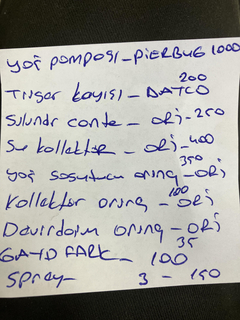 yağ pompası - PiERBUG 1000
200
Triger kayışı - DAYCO
Silindir conta - ORJ - 250
Su kollektör - ORJ - 400
350
yağ soğutucu oring - ORJ
100
Kollektör oring - ORJ
Devirdaim oring - ORJ
35
100
Sprey 3 - 150